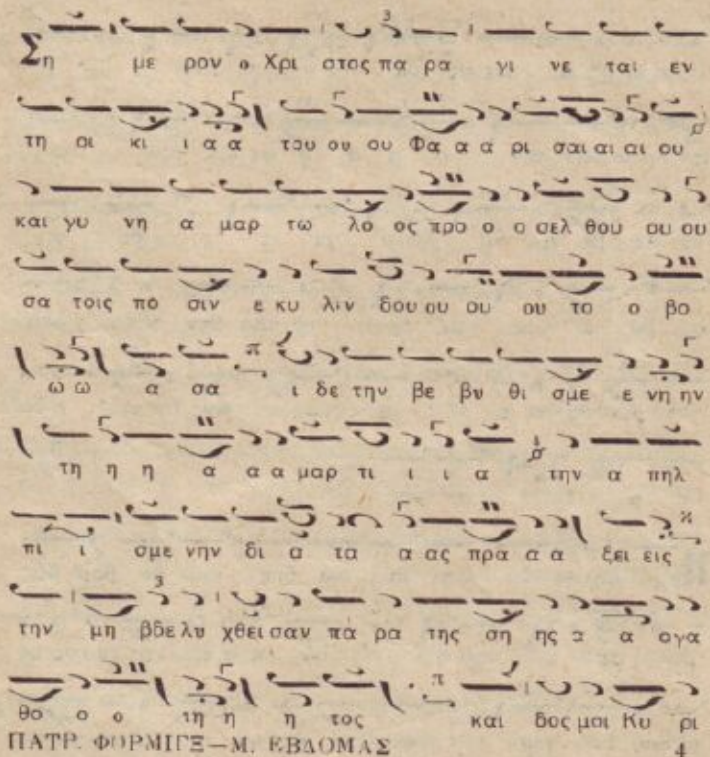 Ση με ρον ο Χρι στος πα ρα γι νε ται εν
τη οι κι ι α α του ου ου Φα α α ρι σαι αι αι ου
και γυ νη α μαρ τω λο ος προ ο ο σελ θου ου ου
σα τοις πο σιν ε κυ λιν δου ου ου ου το ο βο
ω ω α σα ι δε την βε βυ θι σμε ε νη ην
τη η η α α α μαρ τι ι ι α την α πηλ
πι ι σμε νην δι α τα α ας πρα α α ξει εις
την μη βδε λυ χθει σαν πα ρα της ση ης α α ογα
θο ο ο τη η η τος και δος μοι Κυ ρι
ΠΑΤΡ. ΦΟΡΜΙΓΞ—Μ. ΕΒΔΟΜΑΣ 4